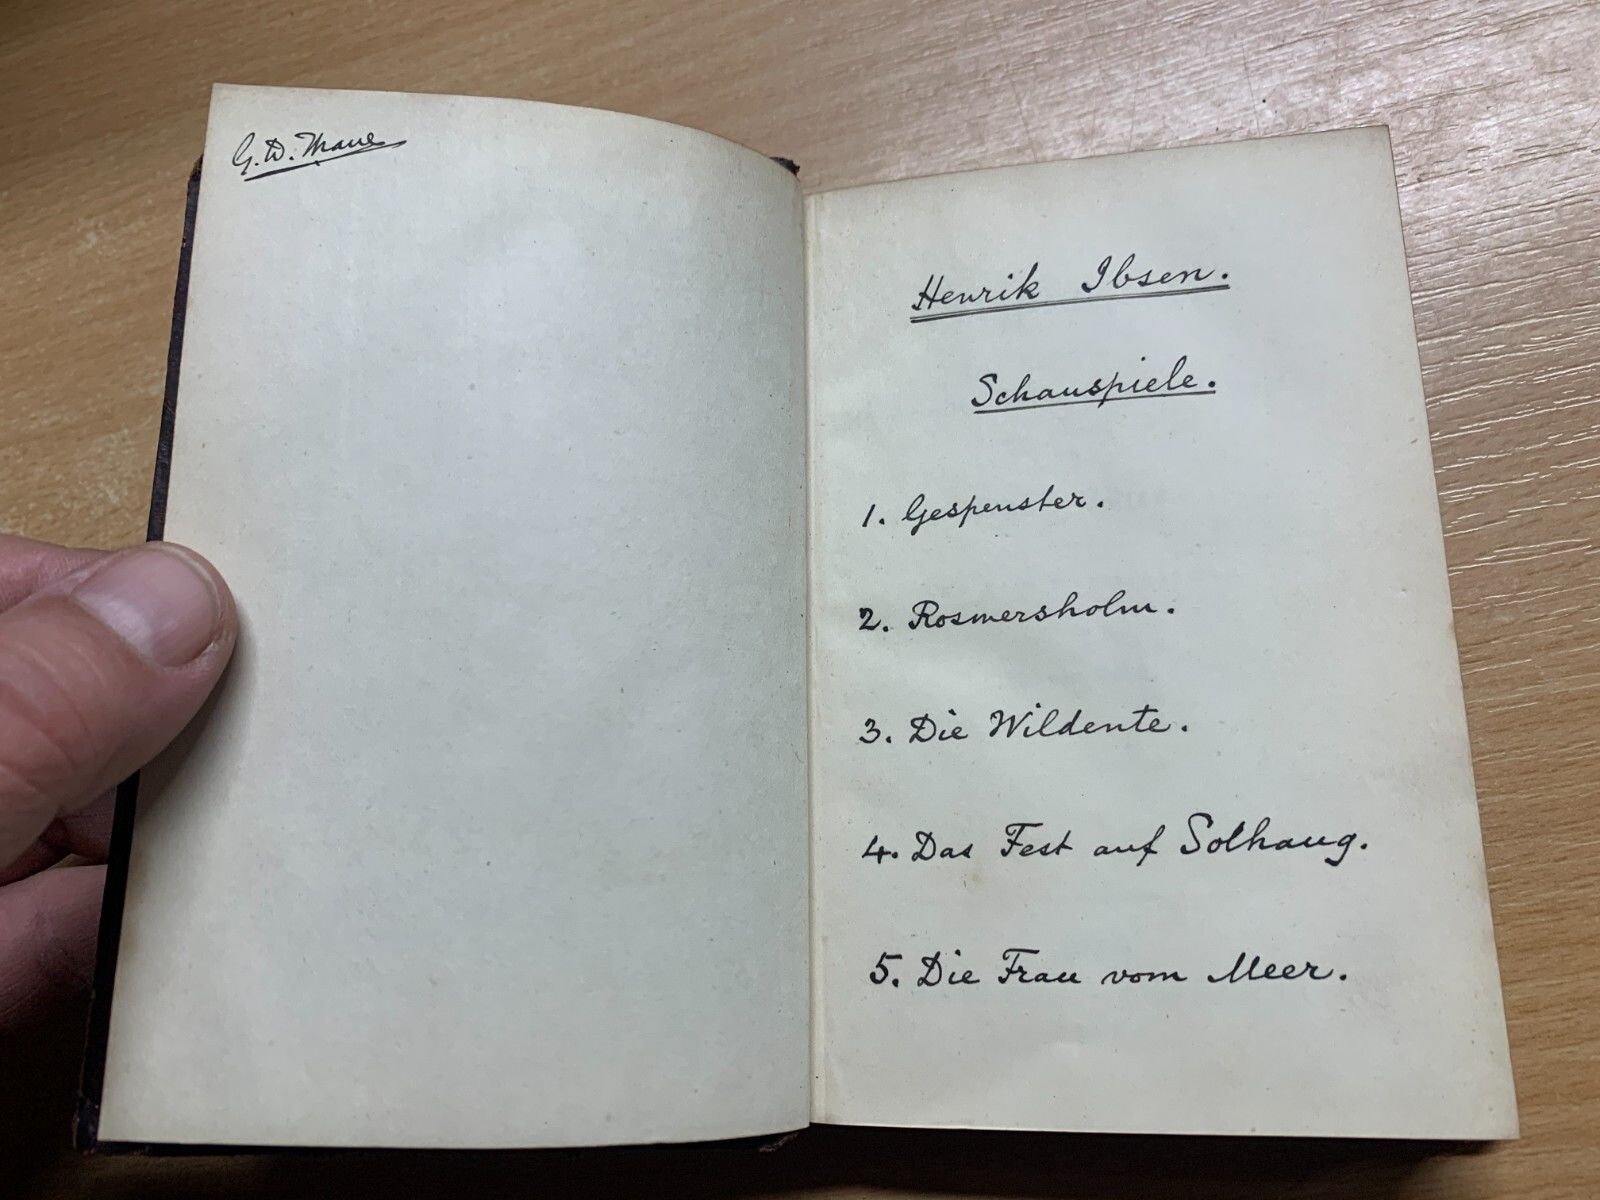 G. D. Maue
Henrik Ibsen.
Schauspiele.
1. Gespenster.
2. Rosmersholm.
3. Die Wildente.
4. Das Fest auf Solhaug.
5. Die Frau vom Meer.